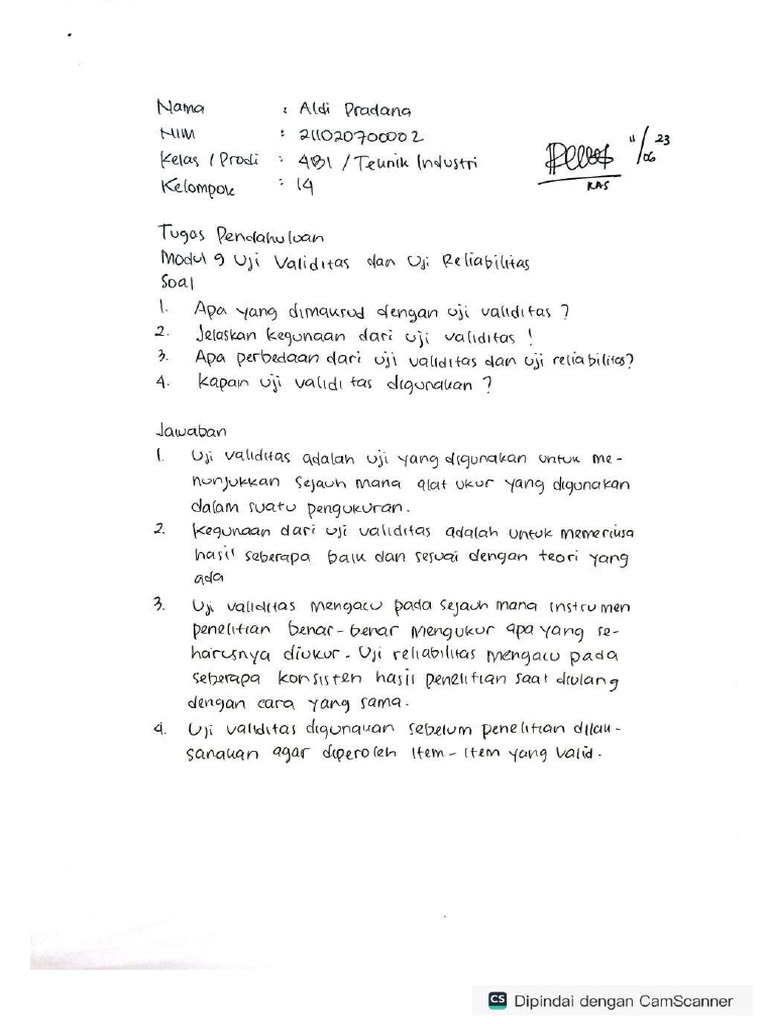 Nama : Aldi Pradana
NIM : 211020700002
Kelas / Prodi : 4B1 / Teknik Industri
Kelompok : 14
11/06 23
KAS
Tugas Pendahuluan
Modul 9 Uji Validitas dan Uji Reliabilitas
Soal
1. Apa yang dimaksud dengan uji validitas ?
2. Jelaskan kegunaan dari uji validitas !
3. Apa perbedaan dari uji validitas dan uji reliabilitas?
4. Kapan uji validitas digunakan ?
Jawaban
1. Uji validitas adalah uji yang digunakan untuk me-
nunjukkan sejauh mana alat ukur yang digunakan
dalam suatu pengukuran.
2. Kegunaan dari uji validitas adalah untuk memeriksa
hasil seberapa baik dan sesuai dengan teori yang
ada
3. Uji validitas mengacu pada sejauh mana instrumen
penelitian benar-benar mengukur apa yang se-
harusnya diukur. Uji reliabilitas mengacu pada
seberapa konsisten hasil penelitian saat diulang
dengan cara yang sama.
4. Uji validitas digunakan sebelum penelitian dilak-
sanakan agar diperoleh item-item yang valid.
CS Dipindai dengan CamScanner